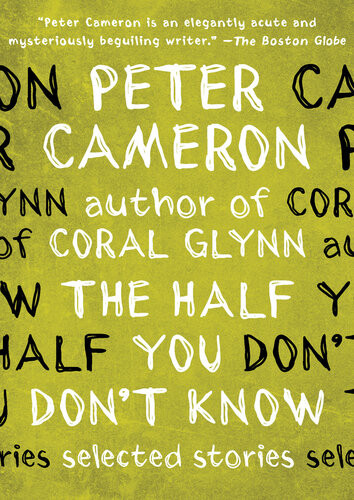 “Peter Cameron is an elegantly acute and
mysteriously beguiling writer.” —The Boston Globe
ON PETER CA
R CAMERON P
YNN author of COR
of CORAL GLYNN au
W THE HALF Y
HALF YOU DON'T
U DON'T KNOW T
ries selected stories sele